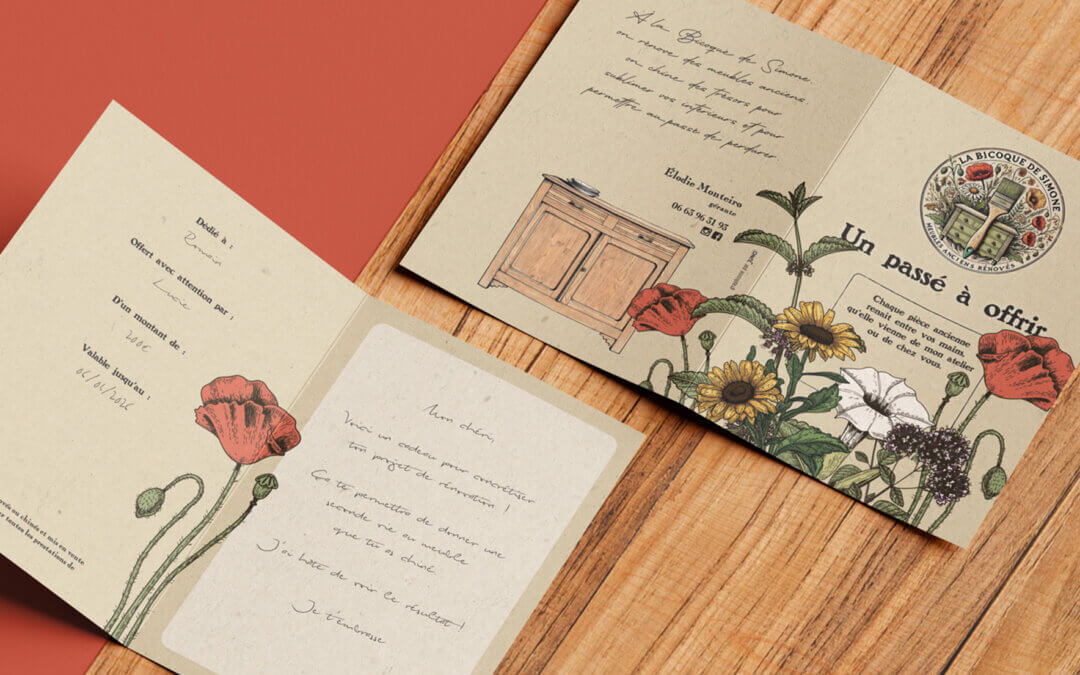 À la Bicoque de Simone
on rénove des meubles anciens
on chine des trésors pour
sublimer vos intérieurs et pour
permettre au passé de perdurer
Élodie Monteiro
gérante
06 63 96 31 93
LA BICOQUE DE SIMONE
MEUBLES ANCIENS RÉNOVÉS
Un passé à offrir
Chaque pièce ancienne
renait entre vos mains.
qu'elle vienne de mon atelier
ou de chez vous.
Dédié à :
Romain
Offert avec attention par :
Lucie
D'un montant de :
200€
Valable jusqu'au :
04/04/2026
ou chinés et mis en vente
toutes les prestations de
Mon chéri,
Voici un cadeau pour concrétiser
ton projet de rénovation !
Ça te permettra de donner une
seconde vie au meuble
que tu as chiné.
J'ai hâte de voir le résultat !
Je t'embrasse